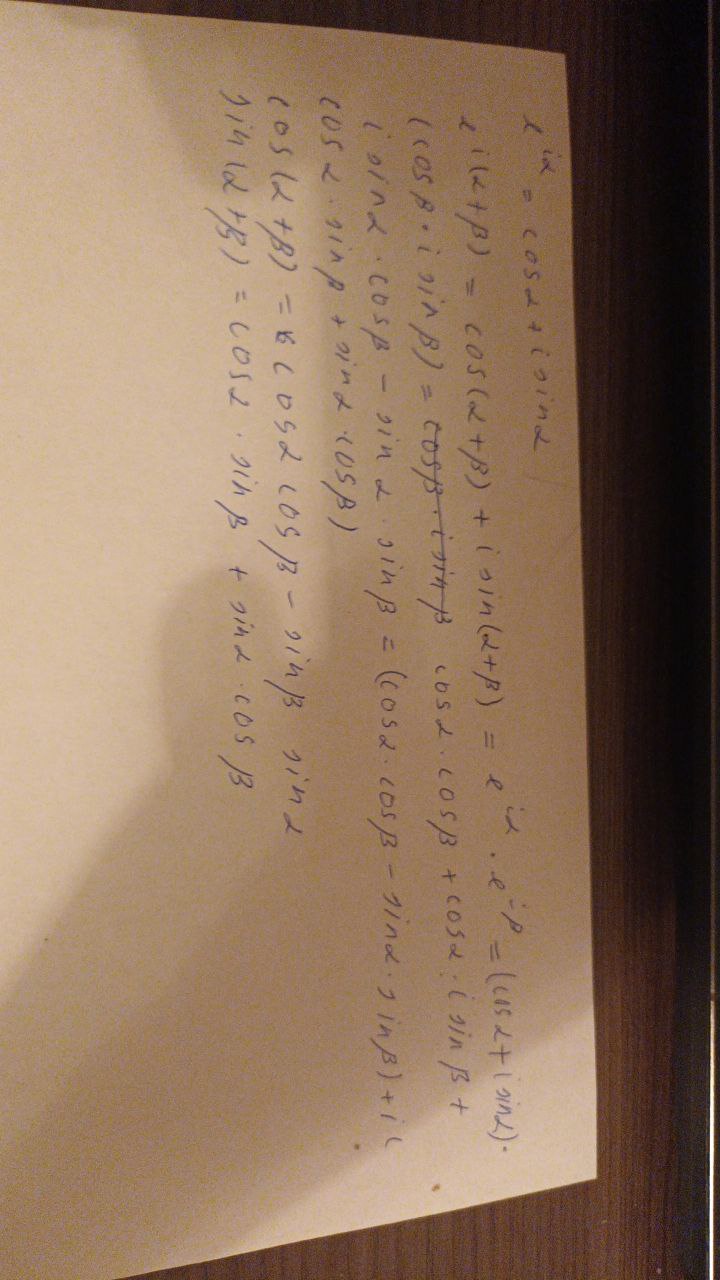 e^{iα} = cosα + i sinα
e^{i(α+β)} = cos(α+β) + i sin(α+β) = e^{iα} · e^{-β} = (cosα + i sinα) ·
(cosβ · i sinβ) = ~~cosβ · i sinβ~~ cosα · cosβ + cosα · i sinβ +
i sinα · cosβ - sinα · sinβ = (cosα · cosβ - sinα · sinβ) + i (
cosα · sinβ + sinα · cosβ)
cos(α+β) = cosα cosβ - sinβ sinα
sin(α+β) = cosα · sinβ + sinα · cosβ